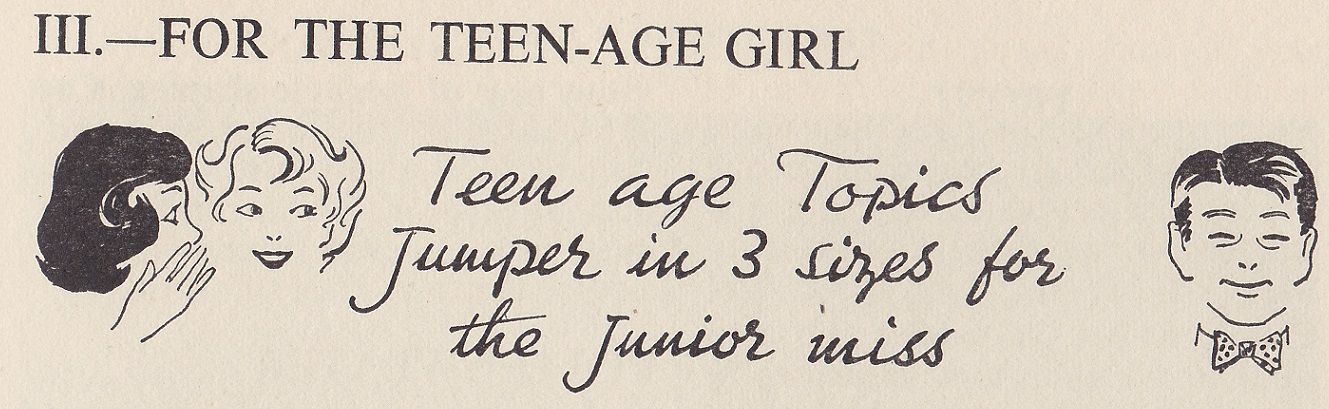 III.—FOR THE TEEN-AGE GIRL
Teen age Topics
Jumper in 3 sizes for
the Junior miss